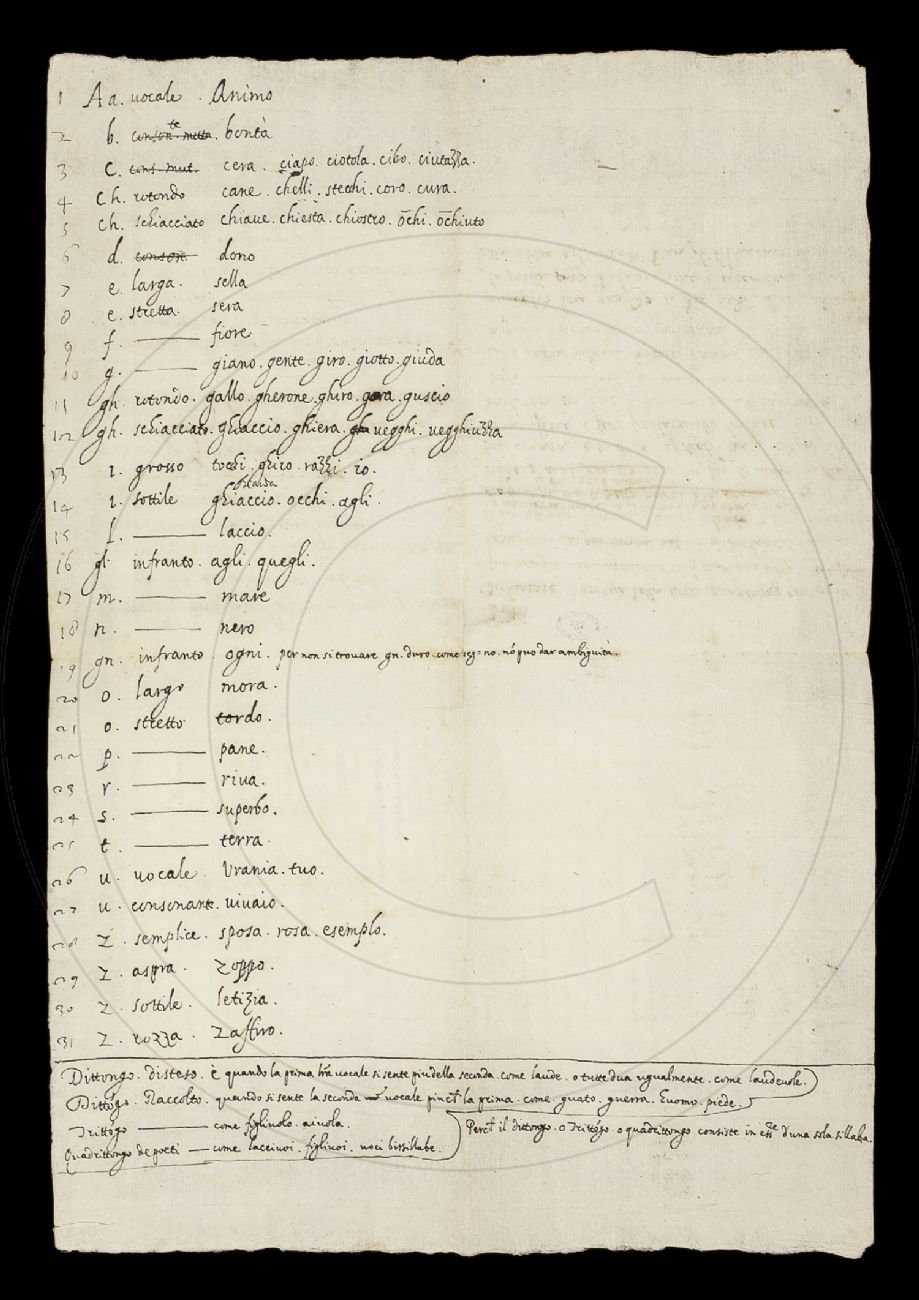 1 A a. vocale . Animo
2 b. conson.te muta. bontà
3 C. cons. mut. cera . ciapo. ciotola. cibo. ciutazza.
4 Ch. rotondo cane . chelli . stecchi . coro . cura.
5 Ch. schiacciato chiave . chiesta . chiostro . ōchi . ōchiuto
6 d. conson. dono
7 e. larga. sella
8 e. stretta. sera
9 f. fiore
10 g. giano. gente. giro. giotto. giuda
11 gh. rotondo. gallo. gherone. ghiro. gora. guscio
12 gh. schiacciato. ghiaccio. ghiera. gh vegghi. vegghiuzza
13 i. grosso tocchi. ghiro. razzi. io.
14 i. sottile ghianda ghiaccio. occhi. agli.
15 l. laccio.
16 gl. infranto. agli. quegli.
17 m. mare
18 n. nero
19 gn. infranto. ogni. per non si trovare gn. duro come seg=no. nō può dar ambiguità.
20 o. largo mora.
21 o. stretto tordo.
22 p. pane.
23 r. riva.
24 s. superbo.
25 t. terra.
26 u. vocale Vrania. tuo.
27 u. consonante. vivaio.
28 Z. semplice. sposa. rosa. esemplo.
29 Z. aspra. Zoppo.
30 Z. sottile. letizia.
31 Z. rozza. Zaffiro.
Dittongo. Disteso. è quando la prima vocale si sente piu della seconda. come laude. o tutte dua ugualmente. come laudevole.
Dittōgo. Raccolto. quando si sente la seconda vocale piu la prima. come. guato. guerra. Euomo. piede.
Trittōgo come figliuolo. aiuola.
Quadrittongo de poeti come lacciuoi. figliuoi. voci bissillabe.
Perch il dittongo. o Trittōgo. o quadrittongo consiste in esse d'una sola sillaba.